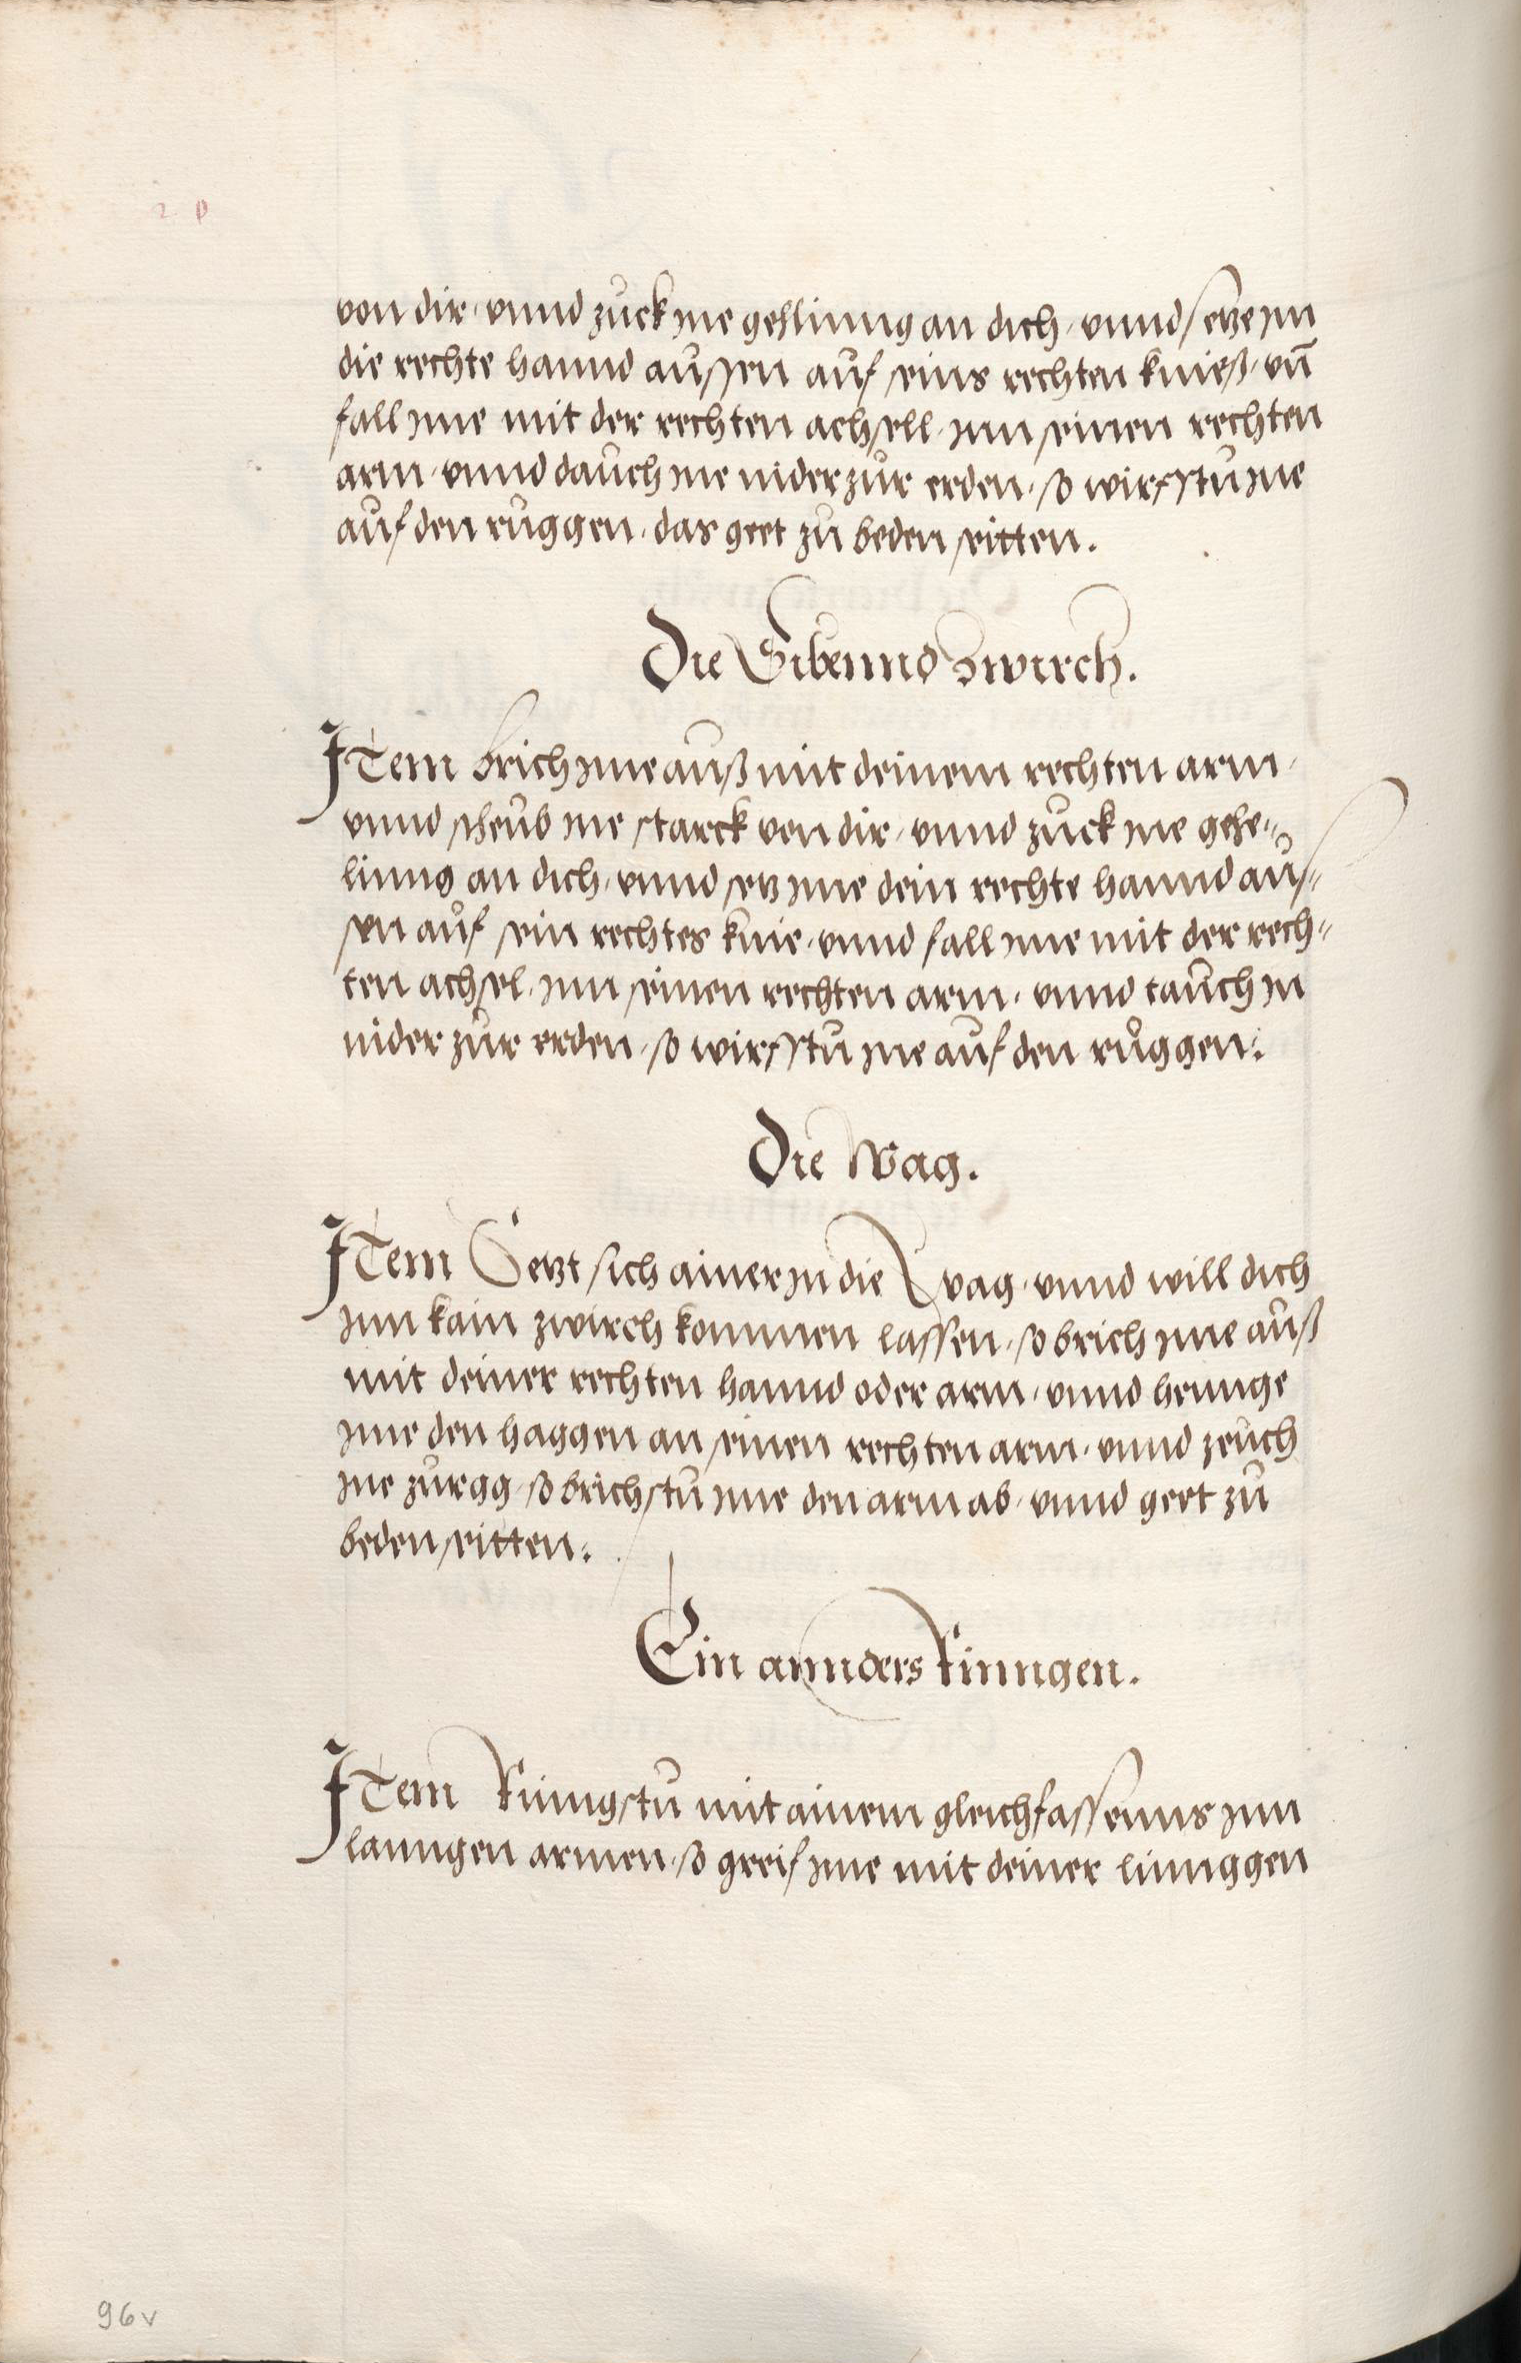 von dir, vnnd zuck jne gehlinng an dich, vnnd setze jm
die rechte hannd aussen auf seins rechten knieß, vn̄
fall jme mit der rechten achsell, jnn seinen rechten
arm, vnnd dauch jne nider zur erden, so wirffstu jne
auf den ruggen, das geet zu beden seitten.
Die Sibennd Zwirch.
JTem brich jme auß mit deinem rechten arm,
vnnd scheub jne starck von dir, vnnd zuck jne gehe=
linng an dich, vnnd setz jme dein rechte hannd aus=
sen auf sein rechtes knie, vnnd fall jme mit der rech=
ten achsel, jnn seinen rechten arm, vnnd tauch jn
nider zur erden, so wirffstu jne auf den ruggen.
Die Wag.
JTem Setzt sich ainer jn die Wag, vnnd will dich
jnn kain zwirch kommen lassen, so brich jme auß
mit deiner rechten hannd oder arm, vnnd hennge
jme den haggen an seinen rechten arm, vnnd zeuch
jne zurgg, so brichstu jme den arm ab, vnnd geet zu
beden seitten.
Ein annders Rinngen.
JTem Rinngstu mit ainem gleichfassenns jnn
lanngen armen, so greif jme mit deiner linnggen
96v